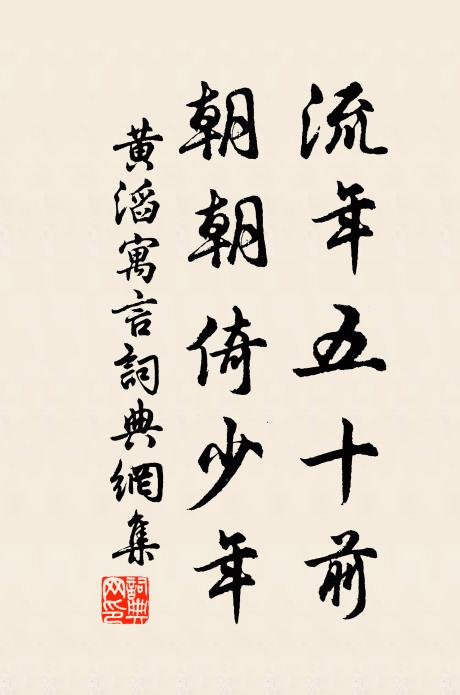 流年五十前
朝朝倚少年
黃滔寓言詞典網集
詞典网印